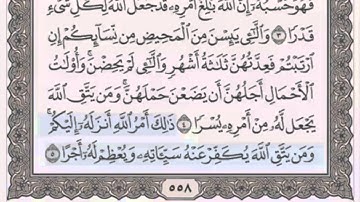 فَهُوَ حَسْبُهُۥٓ ۚ إِنَّ ٱللَّهَ بَٰلِغُ أَمْرِهِۦ ۚ قَدْ جَعَلَ ٱللَّهُ لِكُلِّ شَىْءٍ
قَدْرًا ٣ وَٱلَّٰٓـِٔى يَئِسْنَ مِنَ ٱلْمَحِيضِ مِن نِّسَآئِكُمْ إِنِ
ٱرْتَبْتُمْ فَعِدَّتُهُنَّ ثَلَٰثَةُ أَشْهُرٍ وَٱلَّٰٓـِٔى لَمْ يَحِضْنَ ۚ وَأُو۟لَٰتُ
ٱلْأَحْمَالِ أَجَلُهُنَّ أَن يَضَعْنَ حَمْلَهُنَّ ۚ وَمَن يَتَّقِ ٱللَّهَ
يَجْعَل لَّهُۥ مِنْ أَمْرِهِۦ يُسْرًا ٤ ذَٰلِكَ أَمْرُ ٱللَّهِ أَنزَلَهُۥٓ إِلَيْكُمْ ۚ
وَمَن يَتَّقِ ٱللَّهَ يُكَفِّرْ عَنْهُ سَيِّـَٔاتِهِۦ وَيُعْظِمْ لَهُۥٓ أَجْرًا ٥
٥٥٨